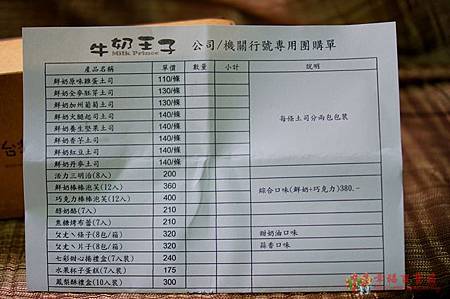 牛奶王子 公司/機關行號專用團購單
Milk Prince
產品名稱 單價 數量 小計 說明
鮮奶原味雞蛋土司 110/條
鮮奶全麥胚芽土司 130/條
鮮奶加州葡萄土司 130/條
鮮奶火腿起司土司 140/條
鮮奶養生堅果土司 140/條
每條土司分兩包包裝
鮮奶香芋土司 140/條
鮮奶紅豆土司 140/條
鮮奶丹麥土司 140/條
活力三明治(8入) 200
鮮奶棒棒泡芙(12入) 360 綜合口味(鮮奶+巧克力)380.-
巧克力棒棒泡芙(12入) 400
醇奶酪(7入) 210
焦糖烤布蕾(7入) 210
ㄆㄤˋ條子(8包/箱) 320 甜奶油口味
ㄆㄤˋ片子(8包/箱) 320 蒜香口味
七彩甜心捲禮盒(7入裝) 240
水果杯子蛋糕(7入裝) 175
鳳梨酥禮盒(10入裝) 300